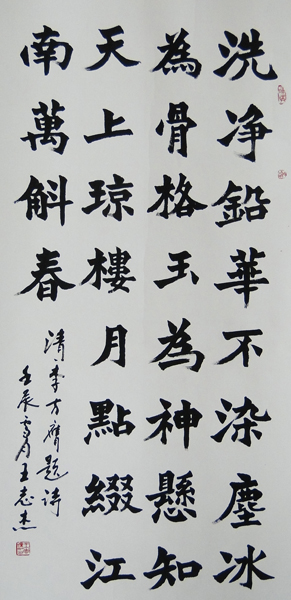 洗净鉛華不染塵冰
為骨格玉為神懸知
天上琼樓月點綴江
南萬斛春
清李方膺題詩
壬辰雪月王志杰